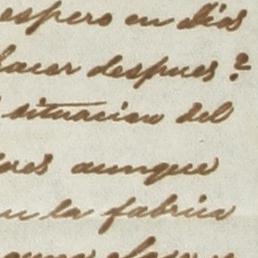 espero en Dios
hacer despues?
situacion del
aunque
la fabrica